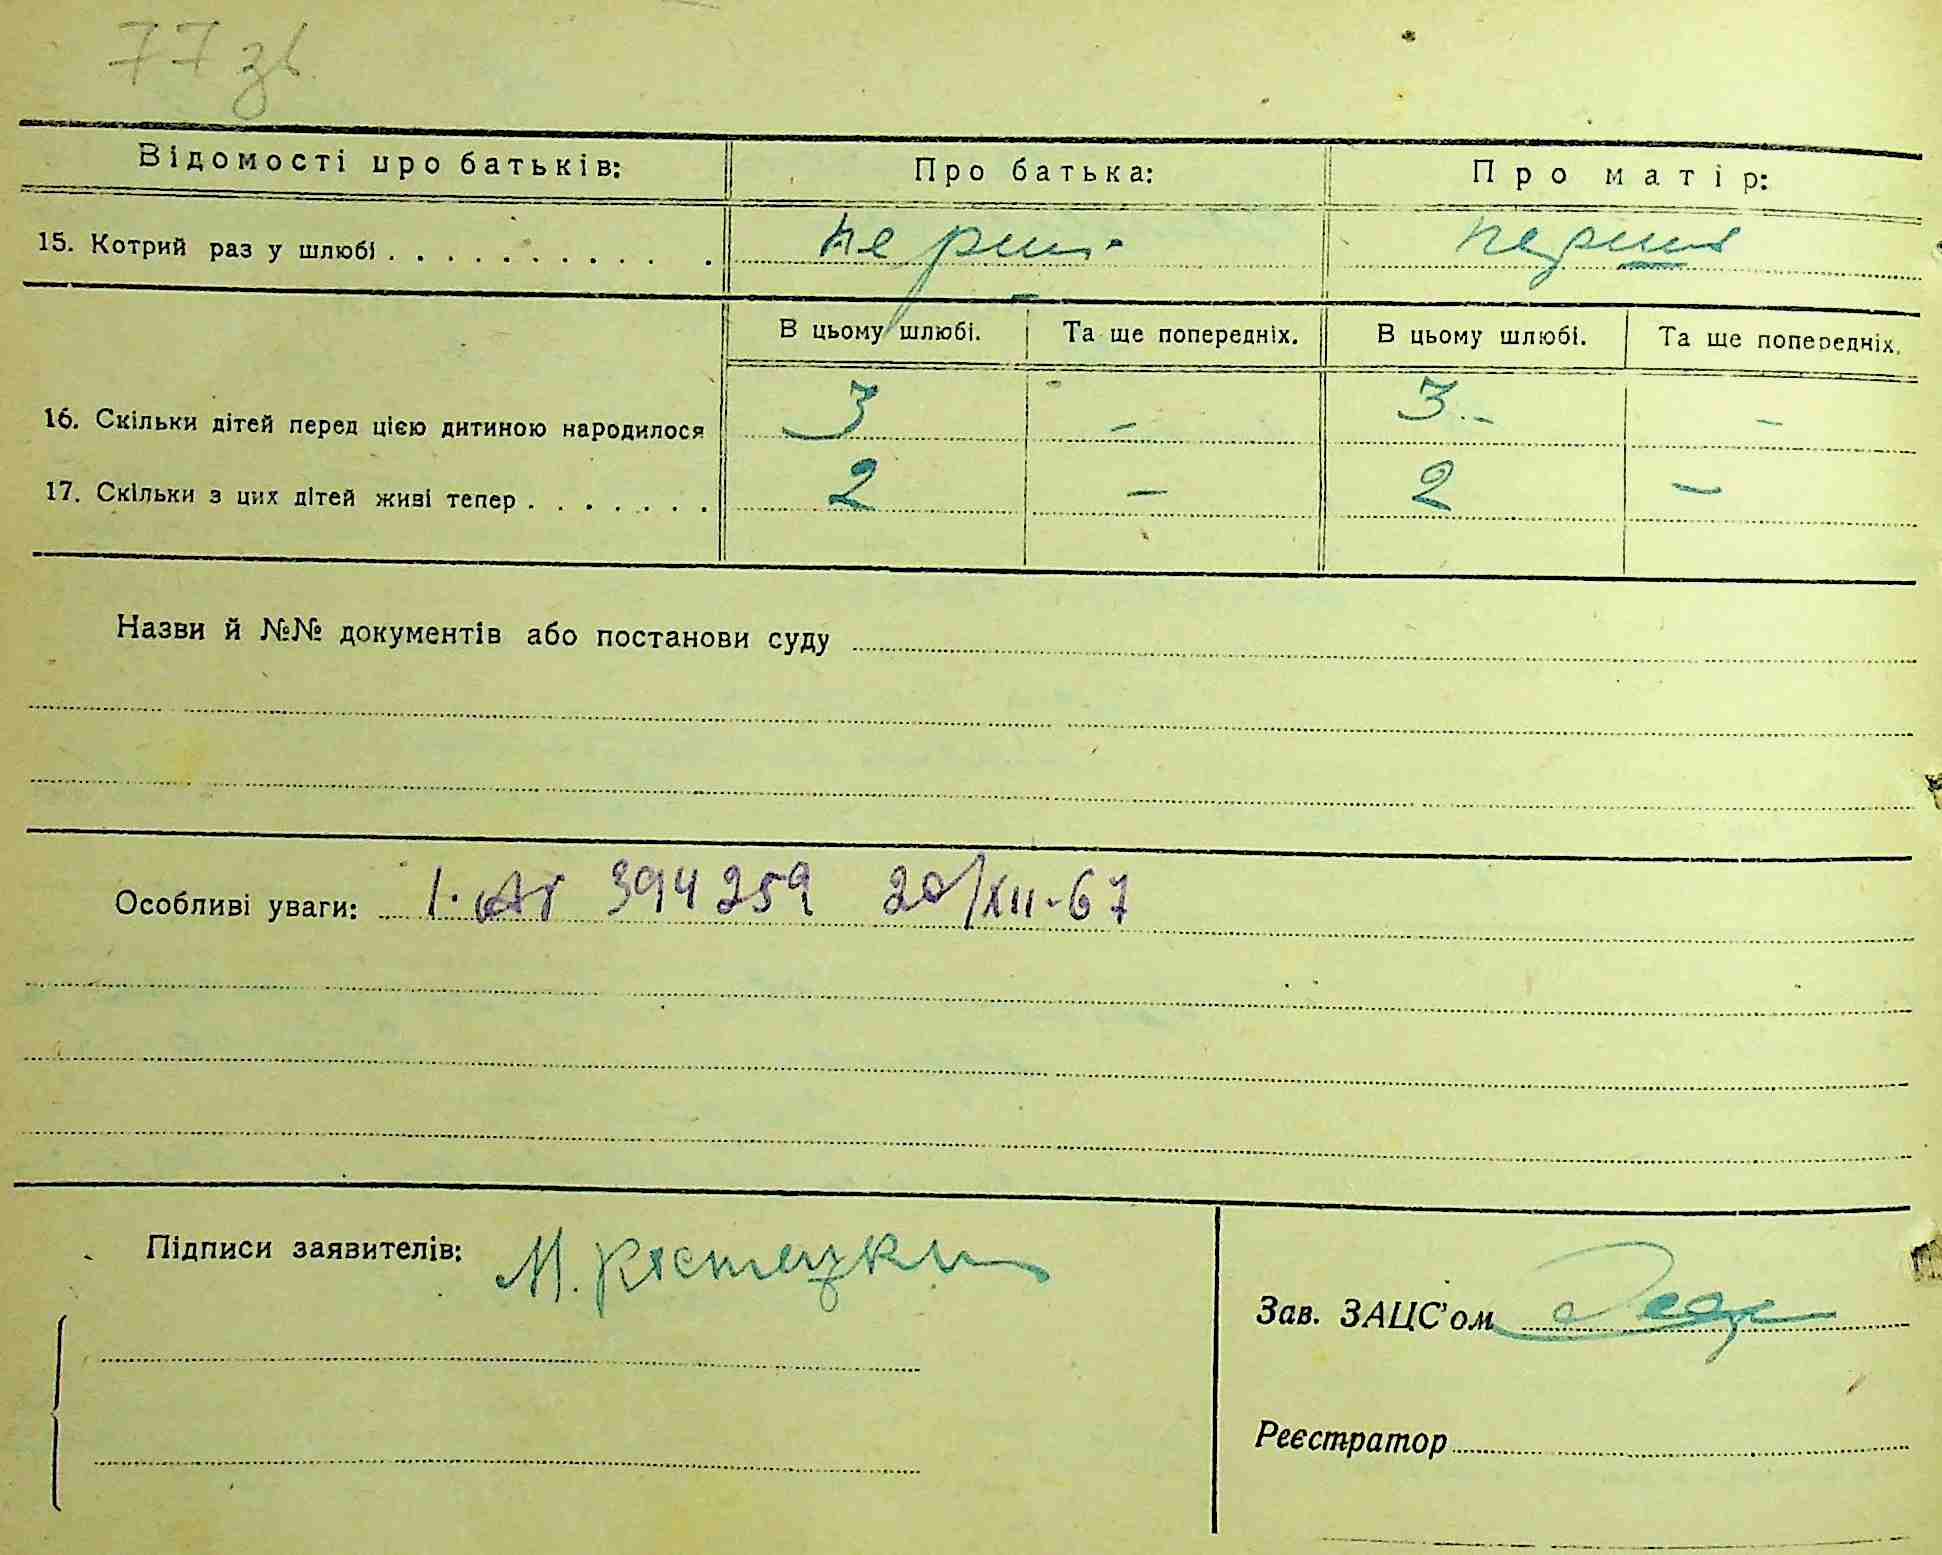 77 зв.
Відомості про батьків: Про батька: Про матір:
15. Котрий раз у шлюбі . . . . . . . . . . . перший перший
В цьому шлюбі. Та ще попередніх. В цьому шлюбі. Та ще попередніх.
16. Скільки дітей перед цією дитиною народилося 3 - 3 - -
17. Скільки з цих дітей живі тепер . . . . . . . 2 - 2 -
Назви й №№ документів або постанови суду
Особливі уваги: 1. 394259 20/XII-67
Підписи заявителів: М.
Зав. ЗАЦС'ом
Реєстратор